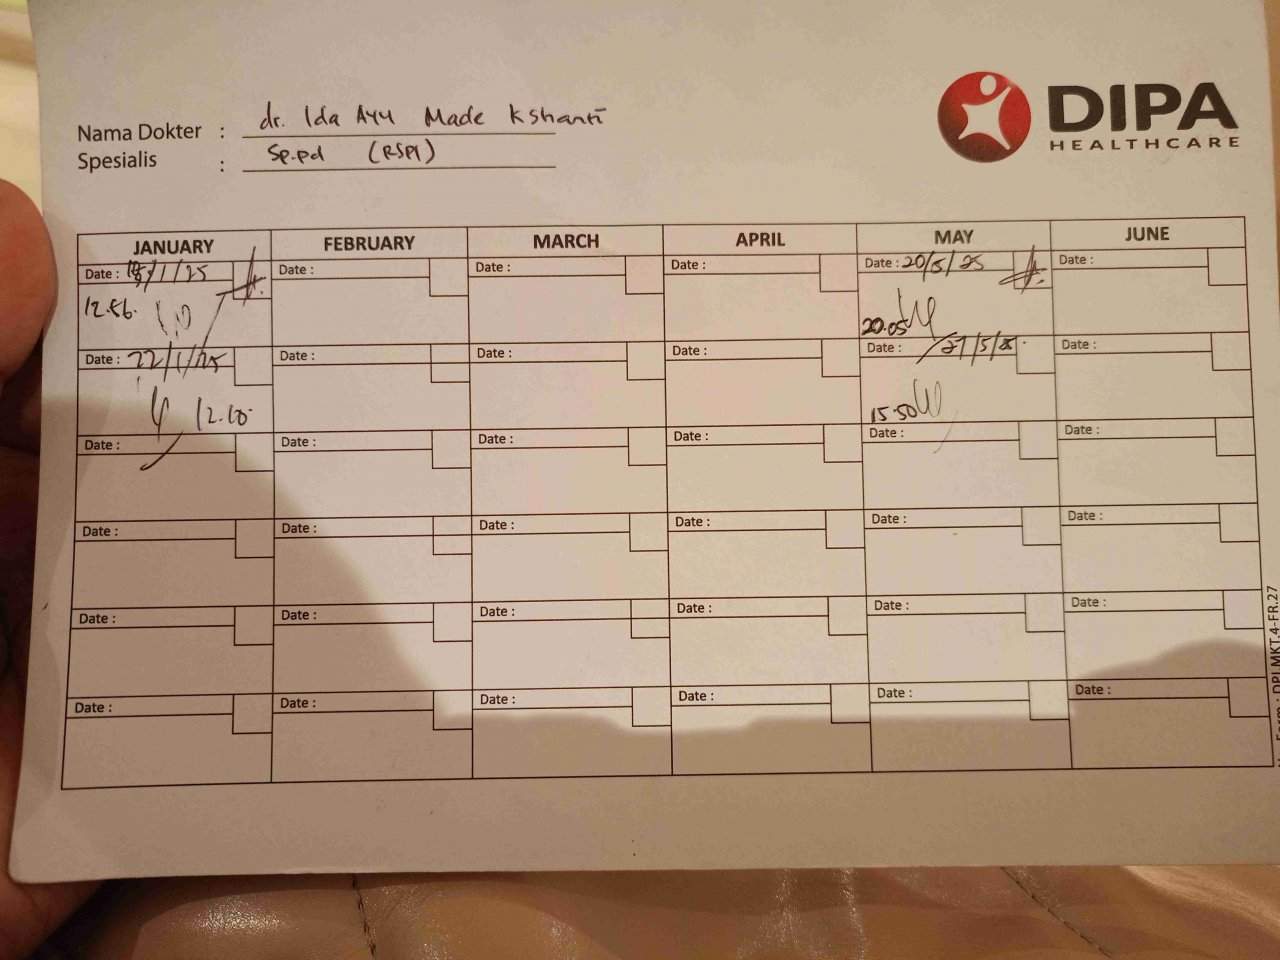 DIPA
HEALTHCARE
Nama Dokter : dr. Ida Ayu Made Kshanti
Spesialis : Sp.pd (RSPI)
JANUARY FEBRUARY MARCH APRIL MAY JUNE
Date : /1/25 Date : Date : Date : Date : 20/5/25 Date :
12.56. 20.05
Date : 22/1/25 Date : Date : Date : Date : 27/5/25 Date :
12.10. 15.50
Date : Date : Date : Date : Date : Date :
Date : Date : Date : Date : Date : Date :
Date : Date : Date : Date : Date : Date :
Date : Date : Date : Date : Date : Date :
DPI.MKT.4-FR.27